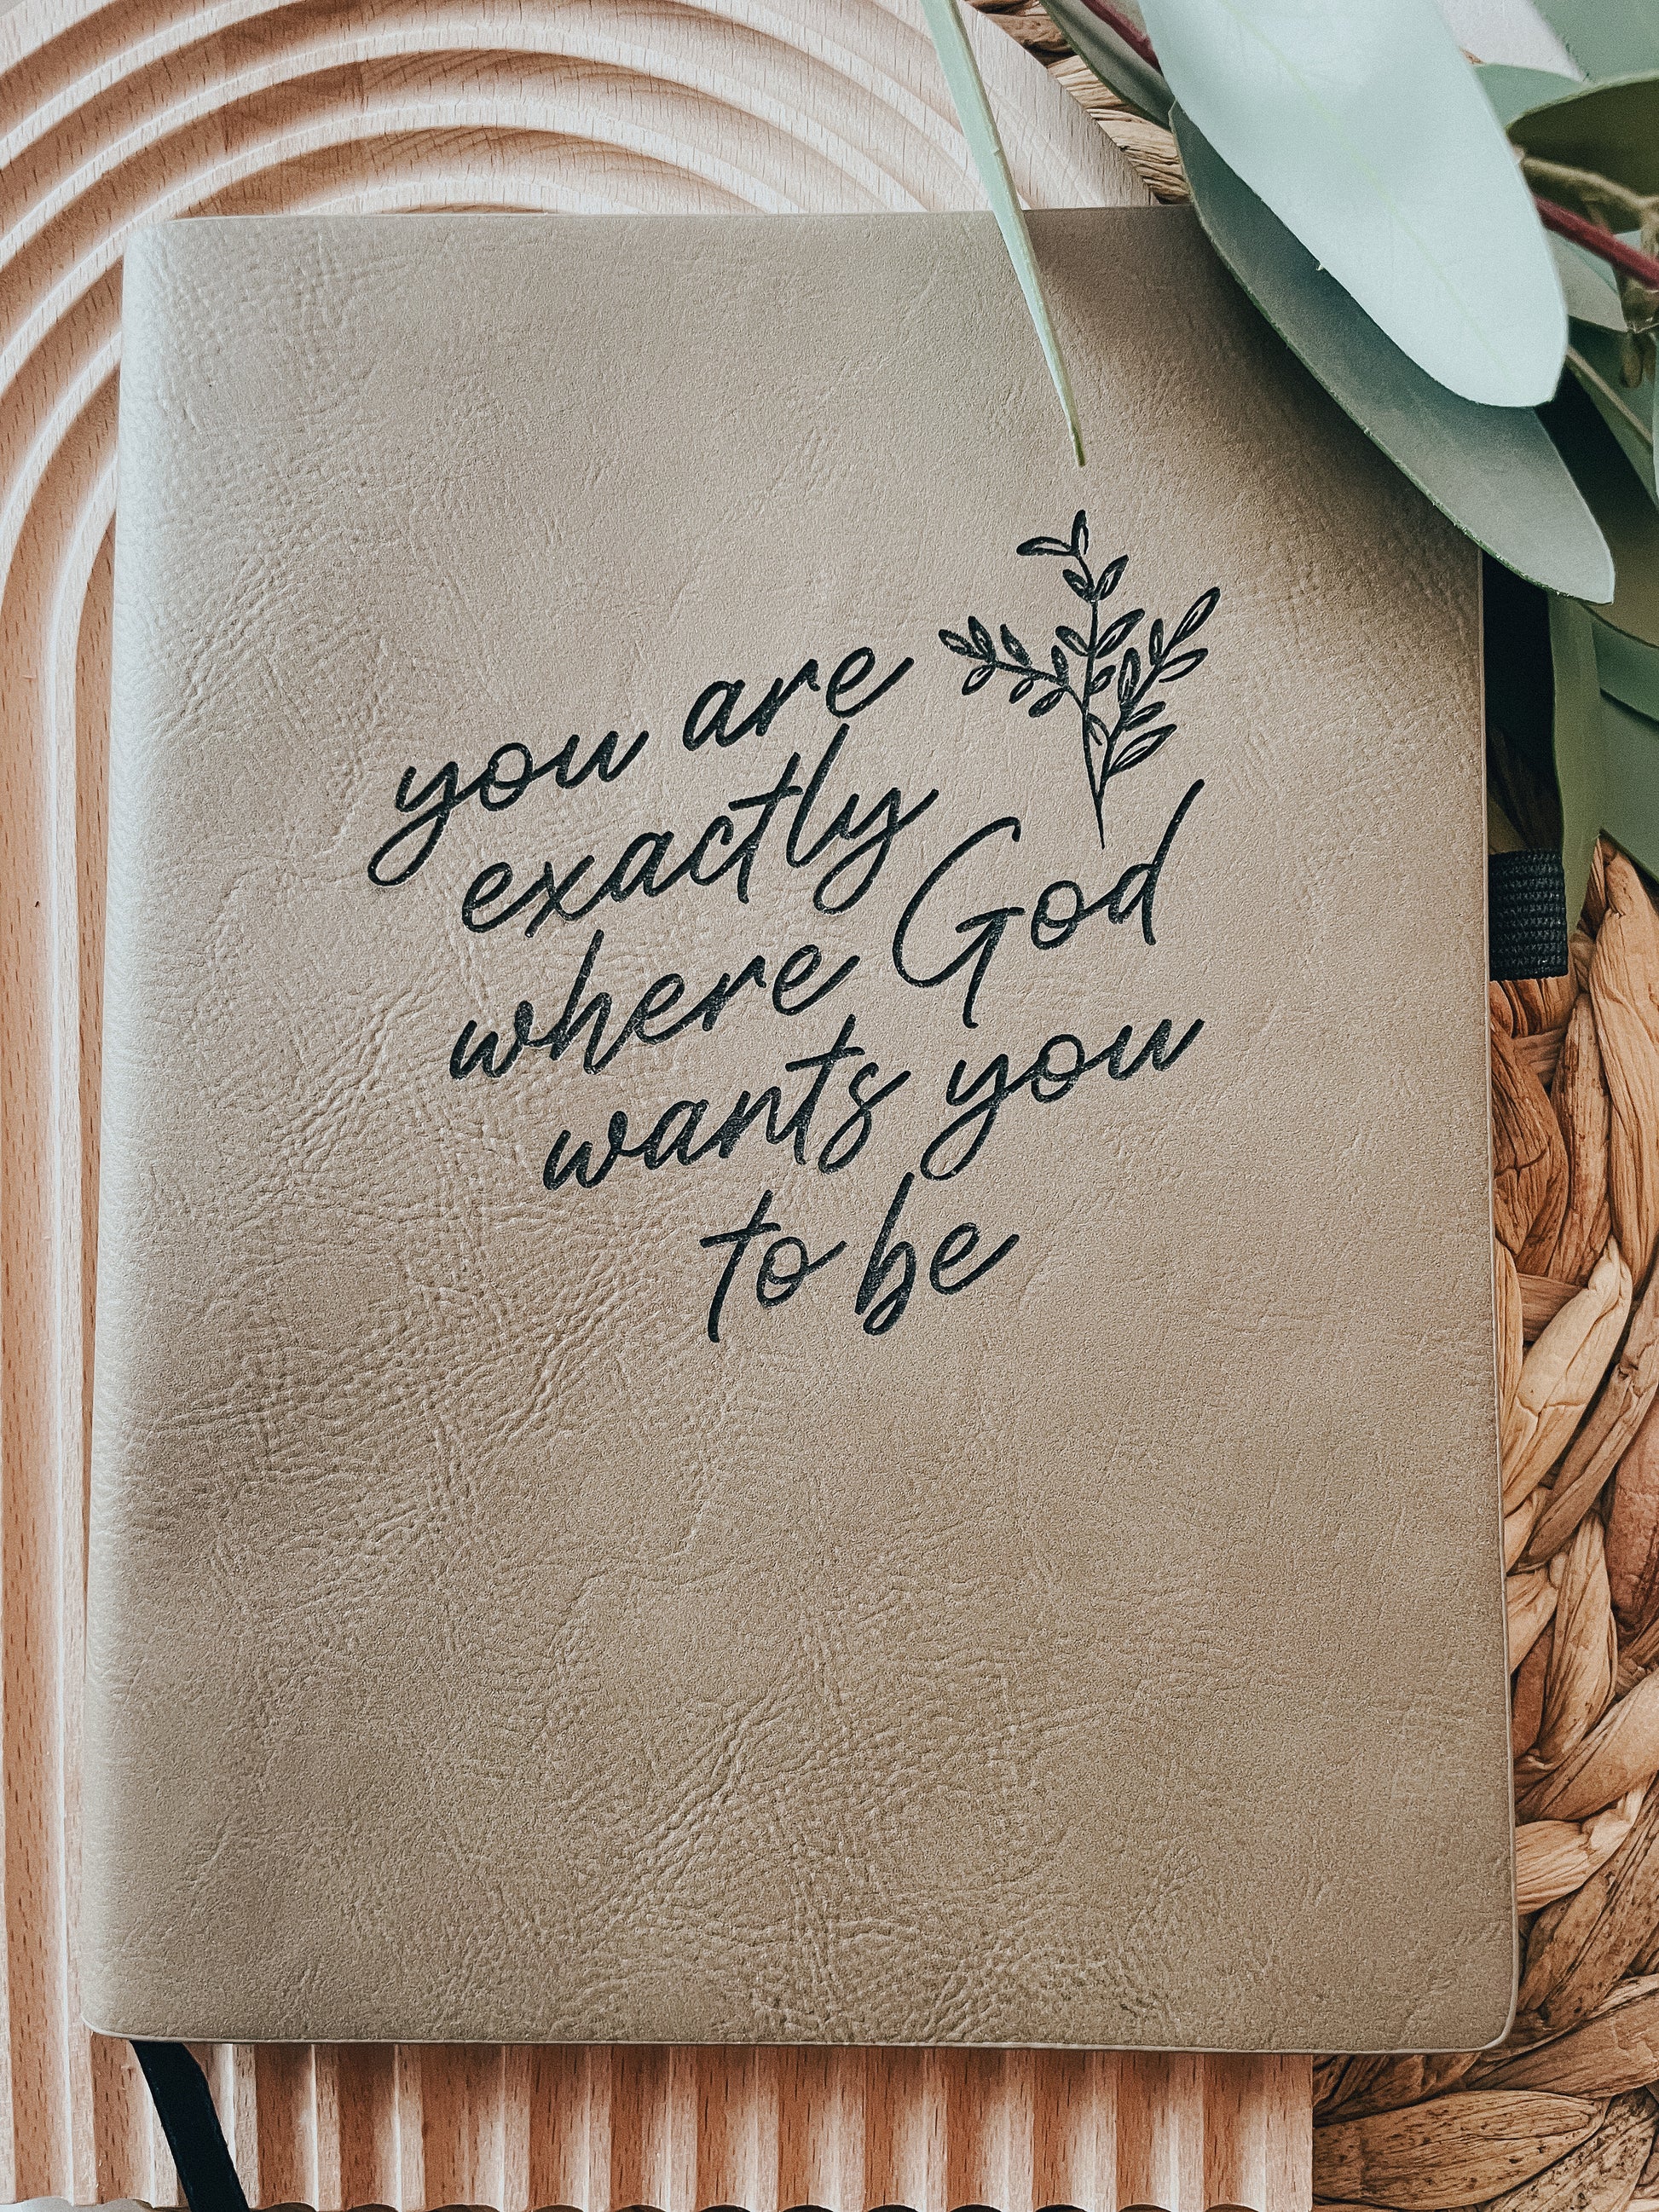 you are
exactly
where God
wants you
to be